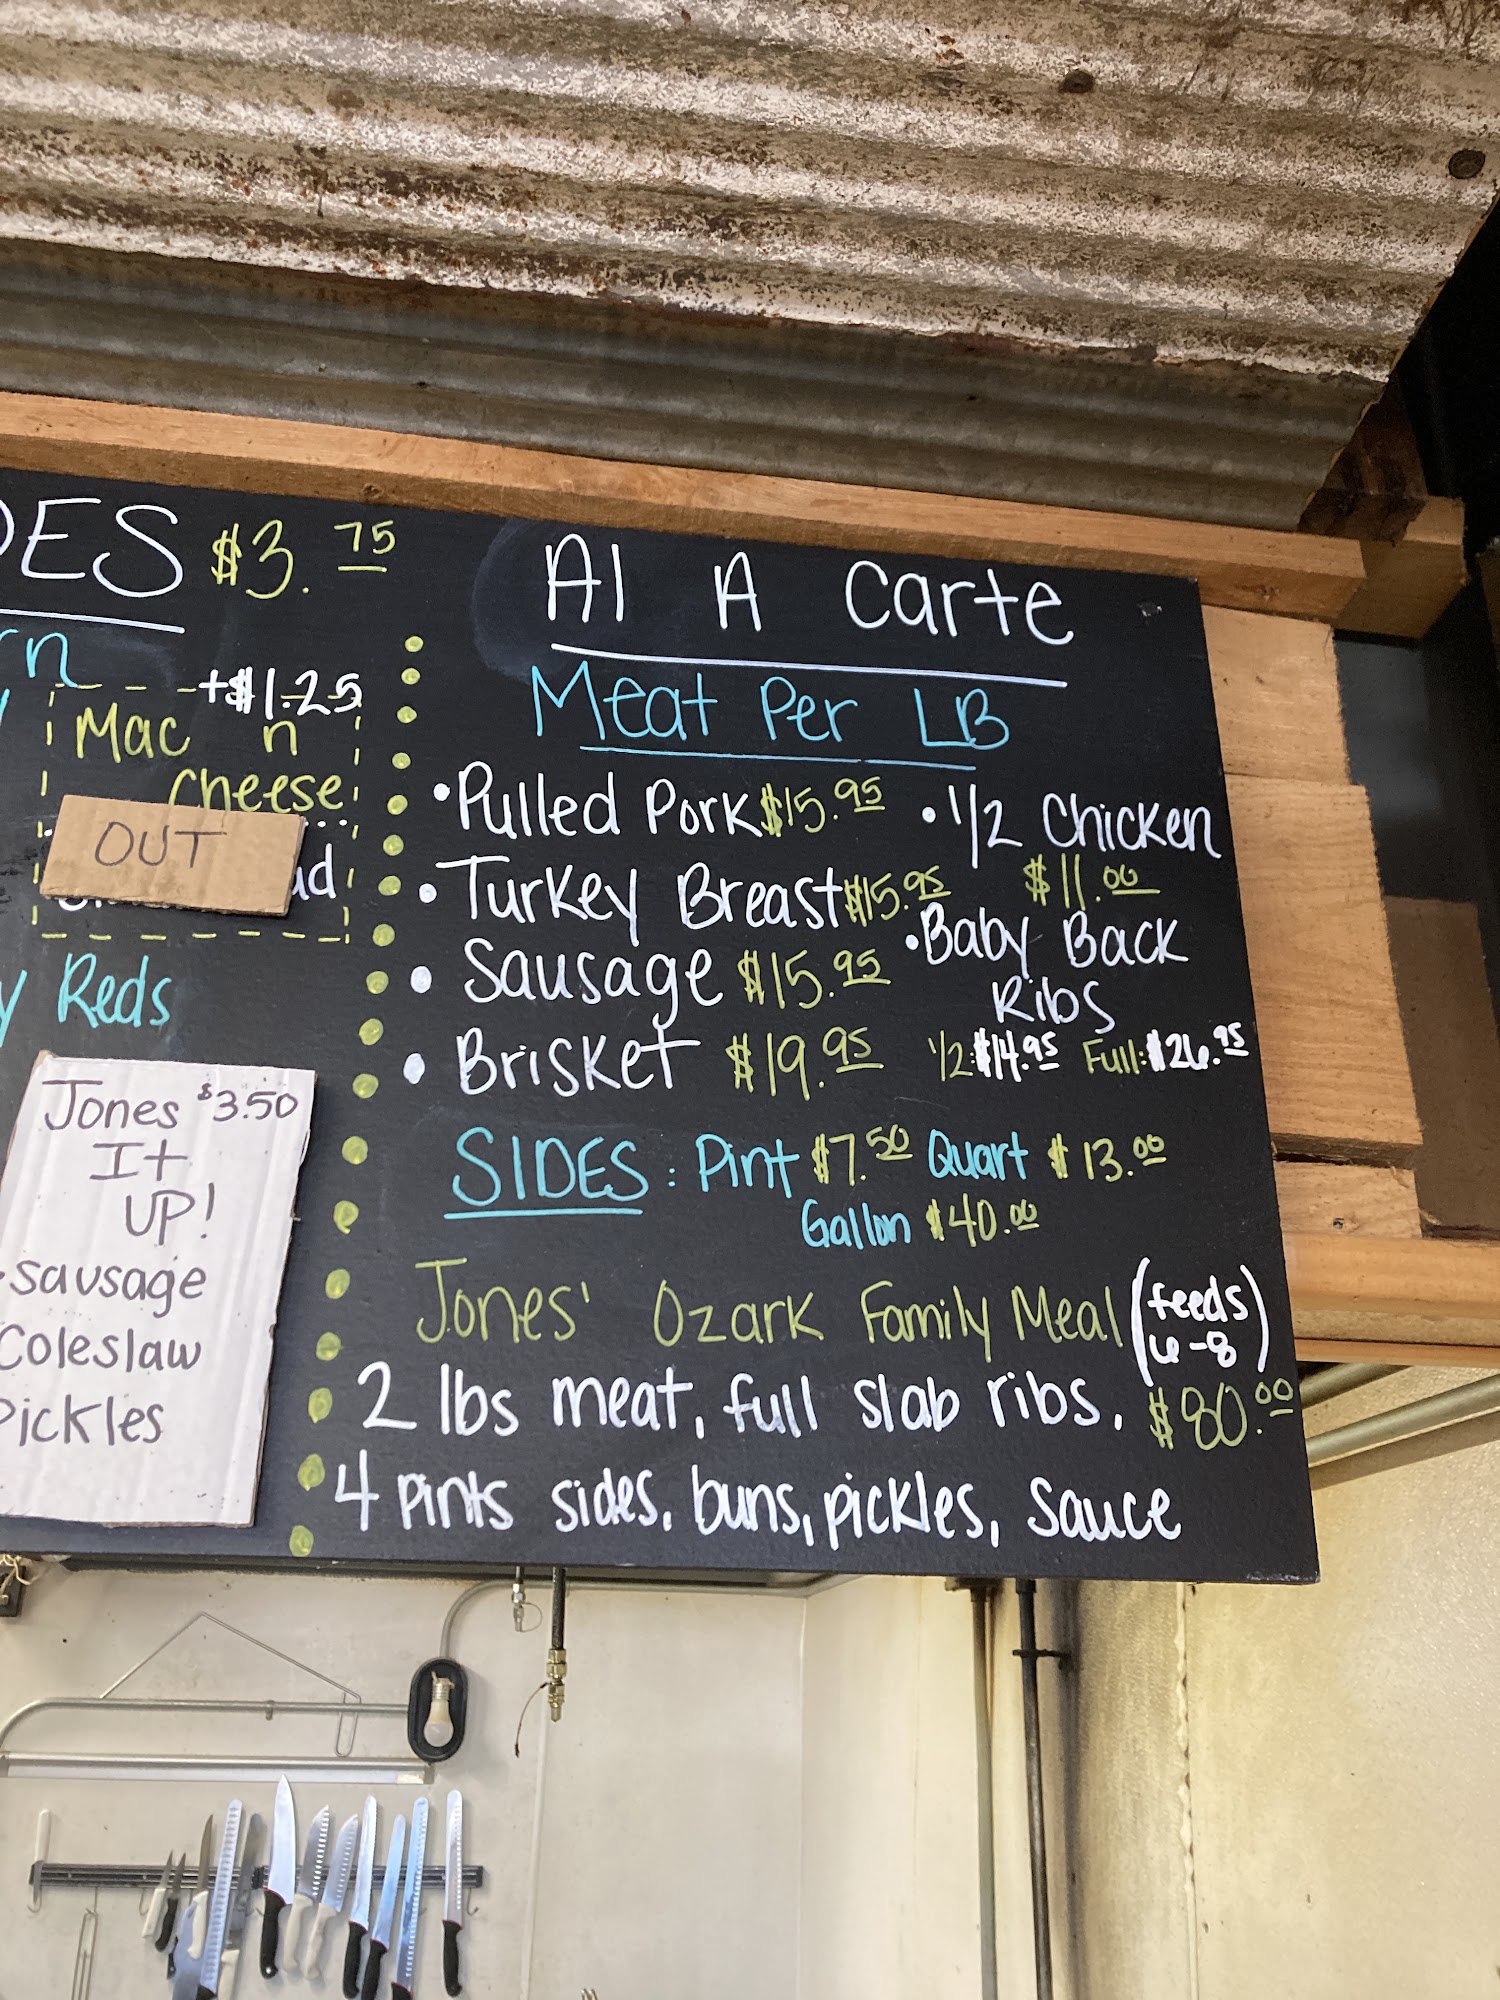 DES $3.75
rn
+$1.25
Mac n
Cheese
OUT
ad
y Reds
Jones $3.50
It
UP!
Sausage
Coleslaw
Pickles
Al A Carte
Meat Per LB
•Pulled Pork $15.95
•Turkey Breast $15.95
•Sausage $15.95
•Brisket $19.95
•1/2 Chicken
$11.00
•Baby Back
Ribs
1/2: $14.95 Full: $26.95
SIDES: Pint $7.50 Quart $13.00
Gallon $40.00
Jones' Ozark Family Meal (feeds
6-8)
2 lbs meat, full slab ribs, $80.00
4 pints sides, buns, pickles, sauce